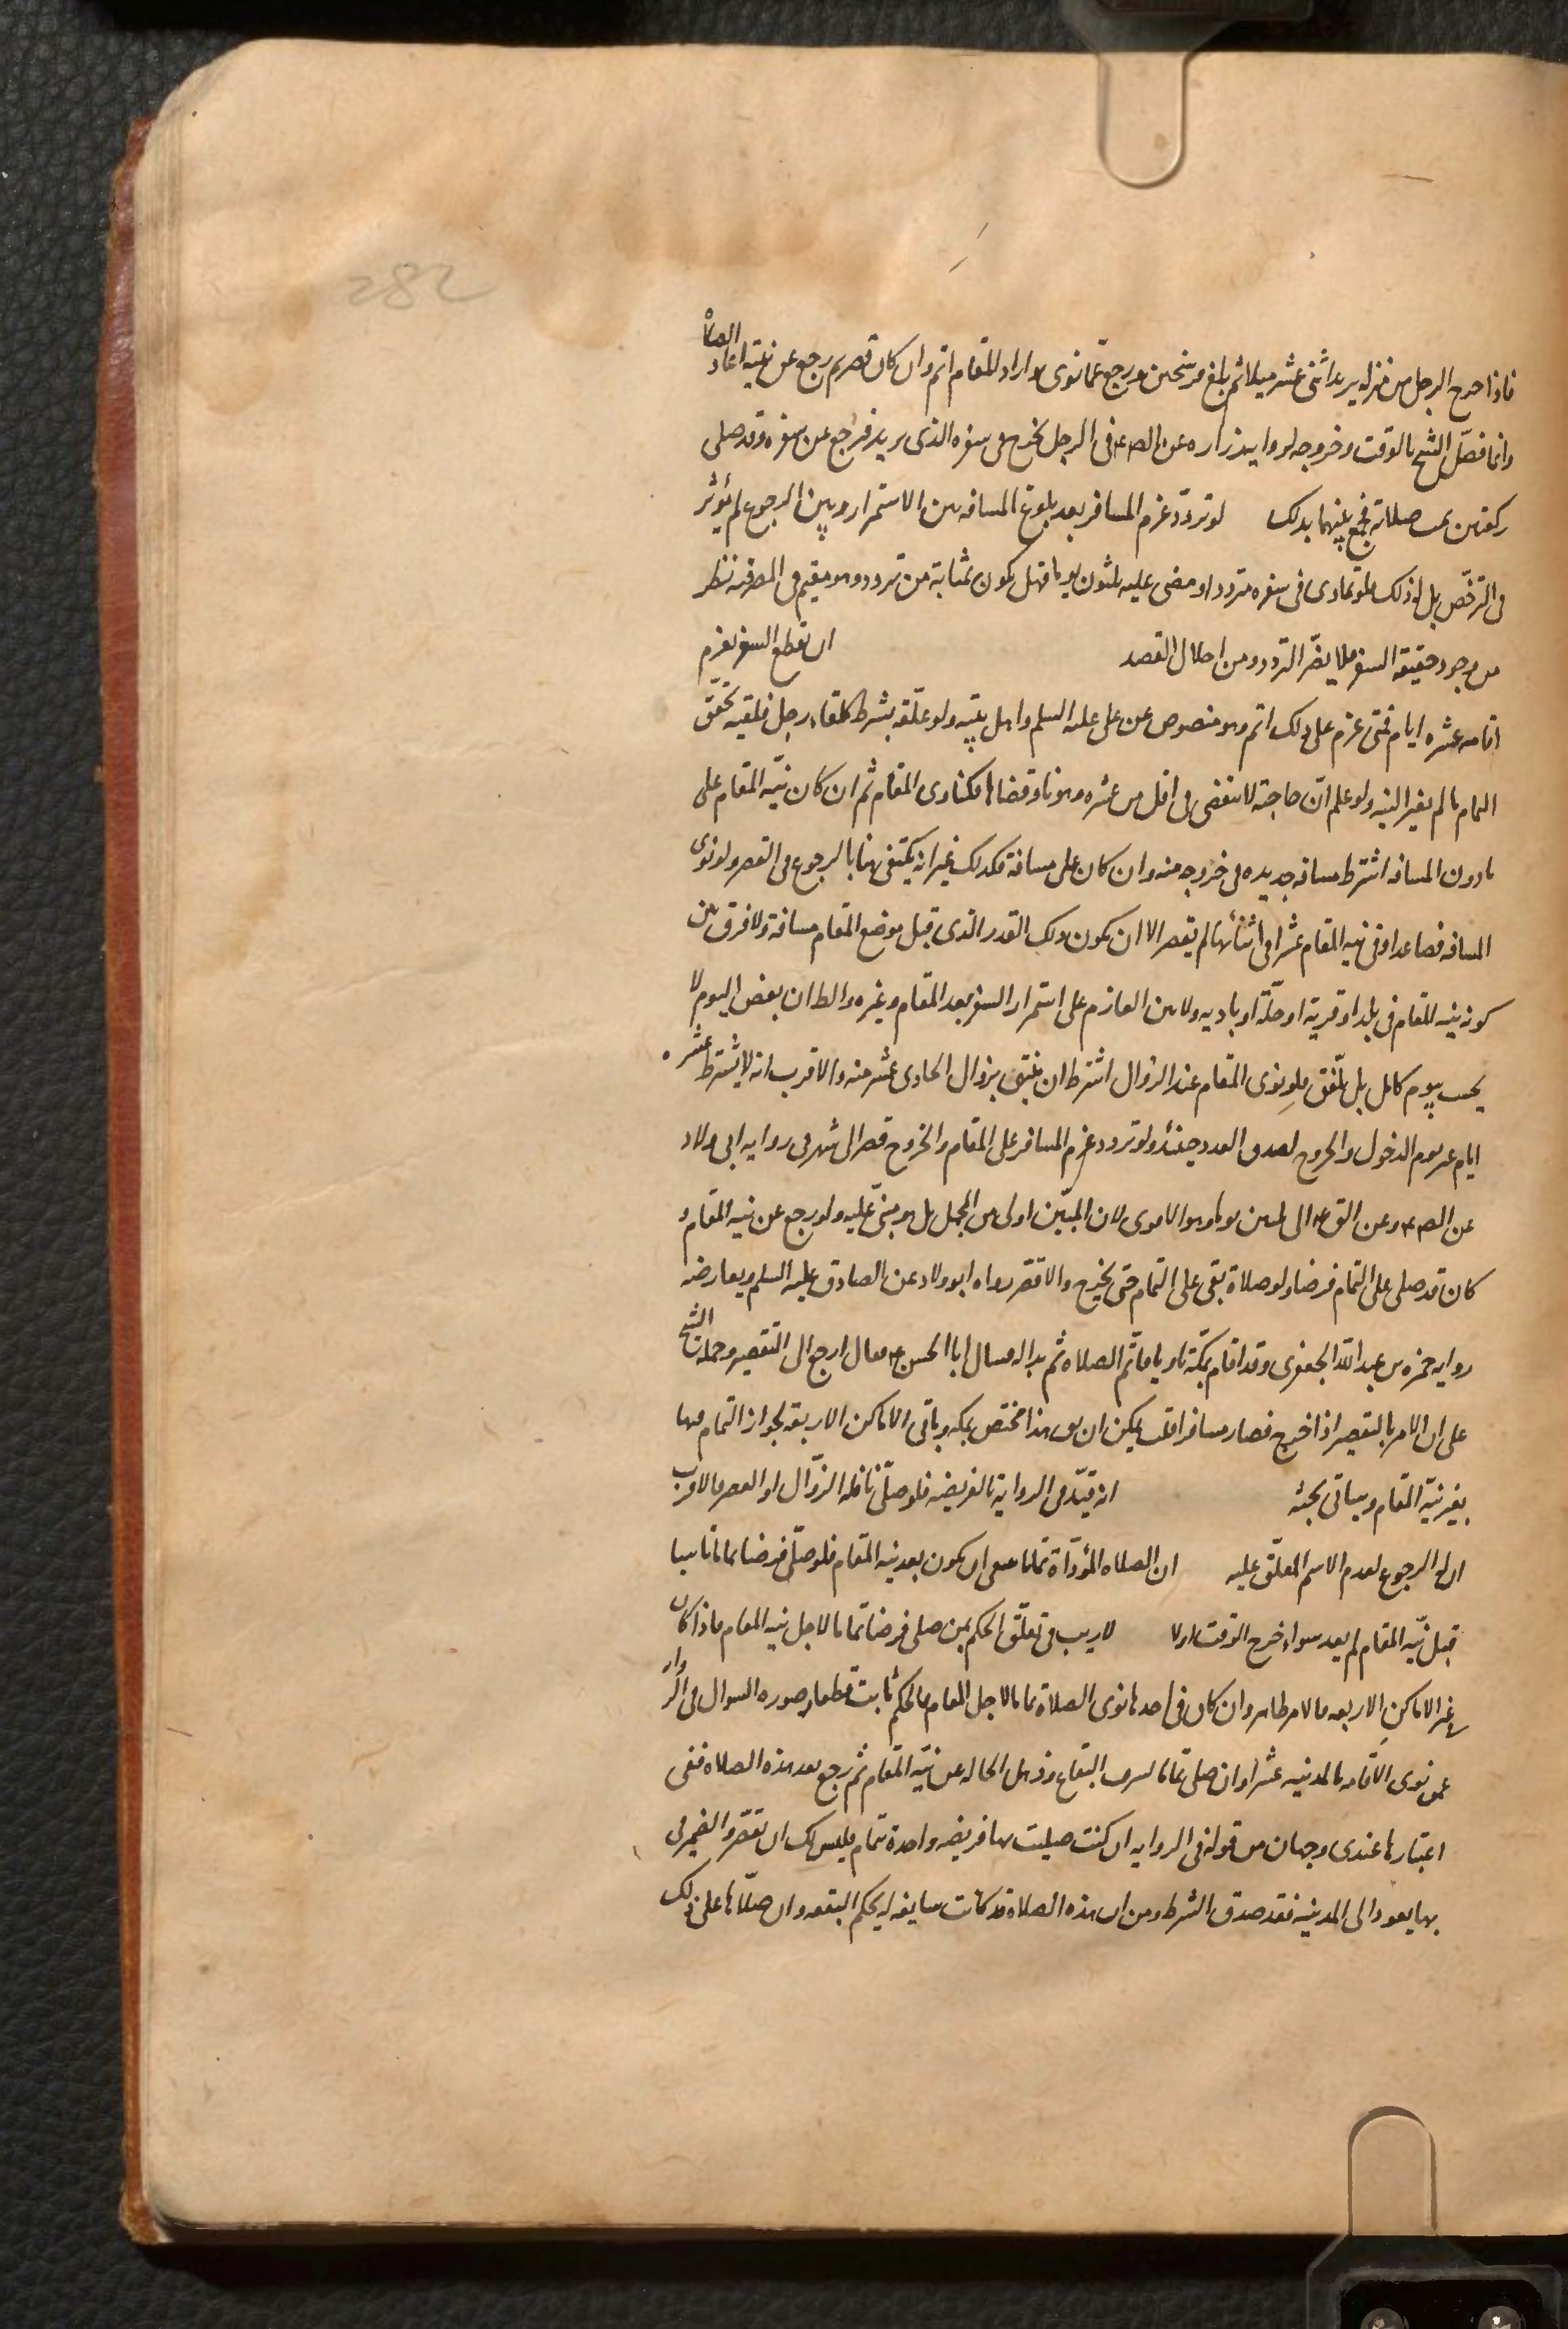 282
فاذا خرج الرجل من منزله يريد اثنى عشر ميلا ثم بلغ فرسخين ورجع عما نوى واراد المقام اتم وان كان قصر ثم رجع عن نيته اعاد الصلاة
وانما فصل الشيخ بالوقت وخروجه لرواية زراره عن الص ع فى الرجل يخرج فى سفره الذى يريد فرجع عن سفره وقد صلى
ركعتين تمت صلاته فجمع بينهما بذلك لو تردد عزم المسافر بعد بلوغ المسافه بين الاستمرار وبين الرجوع لم يؤثر
فى الترخص بل اذ ذلك فلو تمادى فى سفره مترددا ومضى عليه ثلثون يوما فهل يكون بمثابة من تردد وهو مقيم فى المصر فيه نظر
من وجود حقيقة السفر فلا يضر التردد ومن اختلال القصد ان نقطع السفر بعزم
اقامه عشره ايام فمتى عزم على ذلك اتم وهو منصوص عن على عليه السلم واهل بيته ولو علقه بشرط كلقاء رجل فلقيه تحقق
التمام ما لم يغير النيه ولو علم ان حاجته لا تنقضى فى اقل من عشره وهو ناو قضاها فكناوى المقام ثم ان كان نية المقام على
ما دون المسافه اشترط مسافه جديده فى خروجه منه وان كان على مسافة فكذلك غير انه يكتفى هنا بالرجوع فى القصر ولو نوى
المسافه فصاعدا وفى نيه المقام عشرا فى اثنائها لم يقصر الا ان يكون ذلك القدر الذى قبل موضع المقام مسافة ولا فرق بين
كونه نيه المقام فى بلد او قرية او حلة او باديه ولا بين العازم على استمرار السفر بعد المقام وغيره والظ ان بعض اليوم لا
يحسب بيوم كامل بل يلفق فلو نوى المقام عند الزوال اشترط ان ينتهى بزوال الحادى عشر منه والاقرب انه لا يشترط عشره
ايام غير يوم الدخول والخروج لصدق العدد حينئذ ولو تردد عزم المسافر على المقام والخروج قصر الى شهر فى روايه ابى ولاد
عن الص ع وعن الق ع الى ثلثين يوما وهو الاقوى لان المبين اولى من المجمل بل هو مبنى عليه ولو رجع عن نيه المقام و
كان قد صلى على التمام فرضا ولو صلاة بقى على التمام حتى يخرج والا قصر رواه ابو ولاد عن الصادق عليه السلم ويعارضه
روايه حمزه بن عبد الله الجعفرى وقد اقام بمكة ناويا فاتم الصلاه ثم بدا له فسال ابا الحسن ع فقال ارجع الى التقصير وحمله الشيخ
على ان الامر بالتقصير اذا خرج فصار مسافرا قلت يمكن ان يق هذا مختص بمكه وباقى الاماكن الاربعه لجواز التمام فيها
بغير نية المقام وسياتى بحثه انه قيد فى الرواية بالفريضه فلو صلى نافله الزوال او العصر فالاقرب
ان له الرجوع لعدم الاسم المعلق عليه ان الصلاه المؤداة تماما ينبغى ان يكون بعد نيه المقام فلو صلى فرضا تماما ناسيا
قبل نية المقام لم يعد سواء خرج الوقت اولا لا ريب فى تعلق الحكم بمن صلى فرضا تماما لاجل نيه المقام فاذا كان
فى غير الاماكن الاربعه فالامر ظاهر وان كان فى احدها نوى الصلاة تماما لاجل المقام فالحكم ثابت قطعا وصوره السوال فى الروا
عمن نوى الاقامه بالمدينه عشرا وان صلى تماما لشرف البقاع وذهل الحاله عن نية المقام ثم رجع بعد هذه الصلاه ففى
اعتبارها عندى وجهان من قوله فى الروايه ان كنت صليت بها فريضه واحدة بتمام فليس لك ان تقصر والضمير فى
بها يعود الى المدينه فقد صدق الشرط ومن ان هذه الصلاة قد كانت سايغه له بحكم البقعه وان صلاها على ذلك